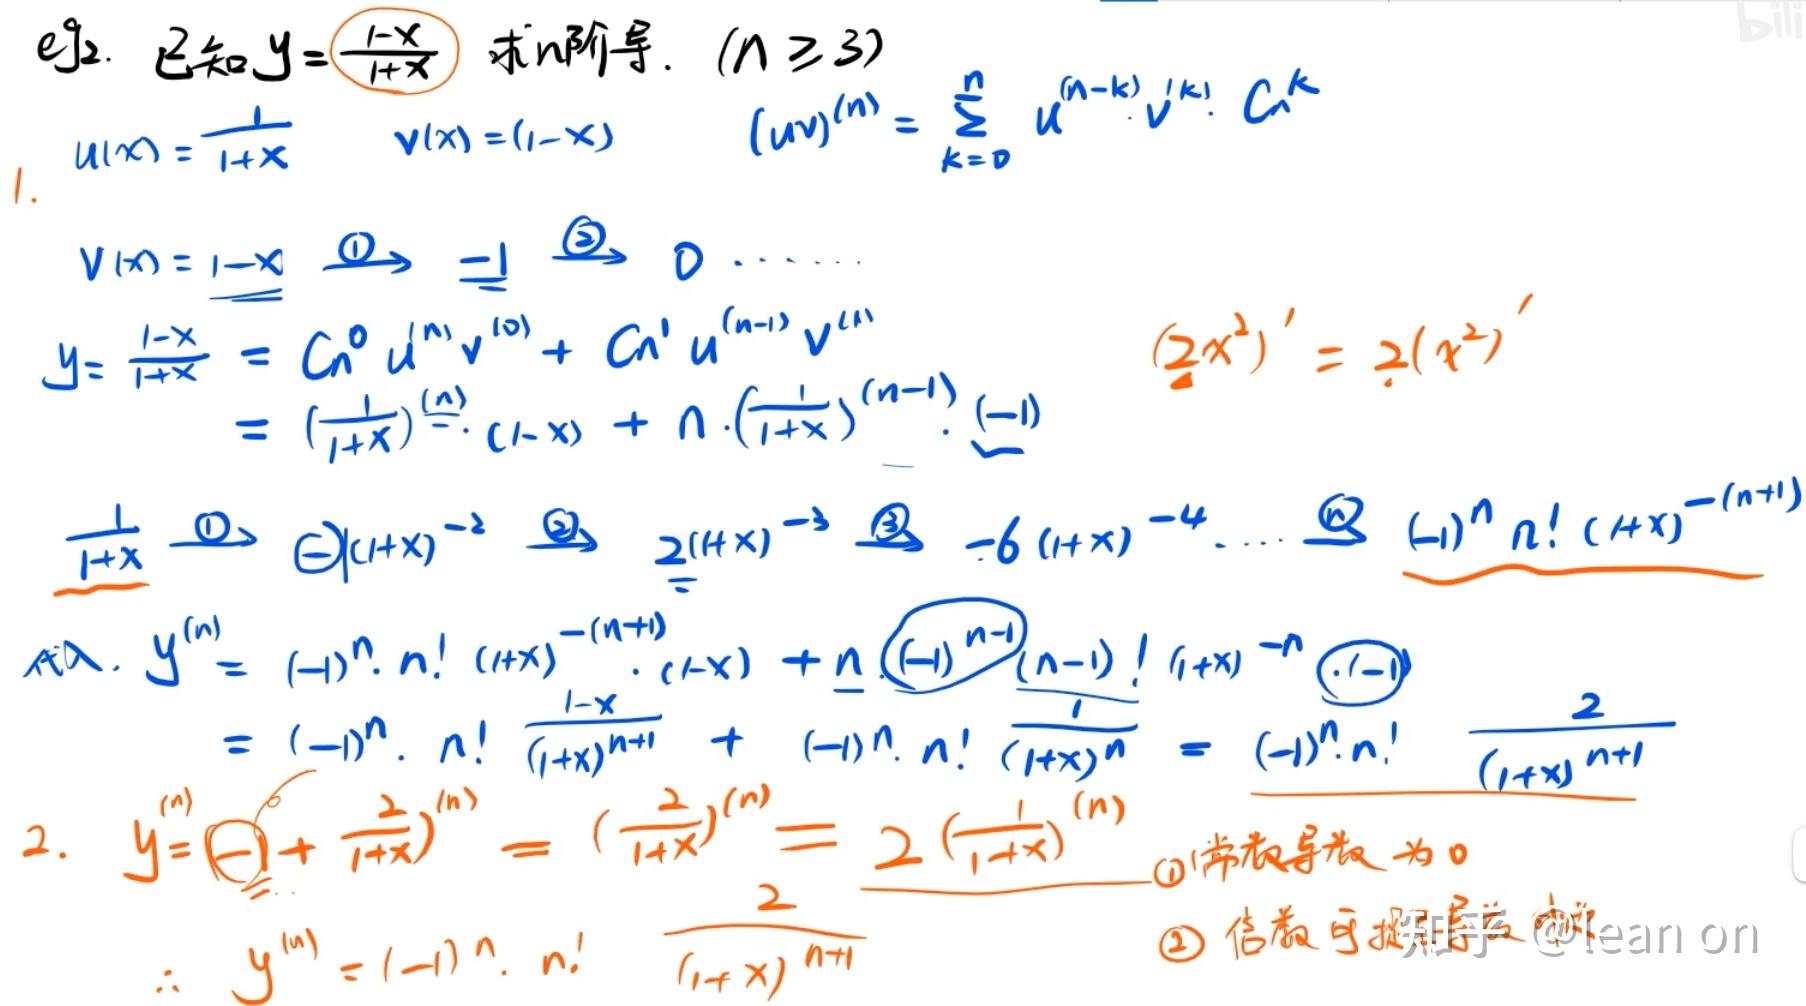 eg2. 已知 y = \frac{1-x}{1+x} 求n阶导. (n ≥ 3)
1.
u(x) = \frac{1}{1+x} v(x) = (1-x) (uv)^{(n)} = \sum_{k=0}^{n} u^{(n-k)} · v^{(k)} · C_n^k
v(x) = 1-x ①→ -1 ②→ 0 ······
y = \frac{1-x}{1+x} = C_n^0 u^{(n)} v^{(0)} + C_n^1 u^{(n-1)} v^{(1)}
(2x^2)' = 2(x^2)'
= (\frac{1}{1+x})^{(n)} · (1-x) + n · (\frac{1}{1+x})^{(n-1)} · (-1)
\frac{1}{1+x} ①→ (-)1(1+x)^{-2} ②→ 2(1+x)^{-3} ③→ -6(1+x)^{-4} ···· ⓝ→ (-1)^n n! (1+x)^{-(n+1)}
y^{(n)} = (-1)^n · n! (1+x)^{-(n+1)} · (1-x) + n · (-1)^{n-1} (n-1)! (1+x)^{-n} · (-1)
= (-1)^n · n! \frac{1-x}{(1+x)^{n+1}} + (-1)^n · n! \frac{1}{(1+x)^n} = (-1)^n · n! \frac{2}{(1+x)^{n+1}}
2. y^{(n)} = (-1 + \frac{2}{1+x})^{(n)} = (\frac{2}{1+x})^{(n)} = 2(\frac{1}{1+x})^{(n)}
① 常数导数为0
② 倍数可提
∴ y^{(n)} = (-1)^n · n! \frac{2}{(1+x)^{n+1}}
知乎 @lean on
bili